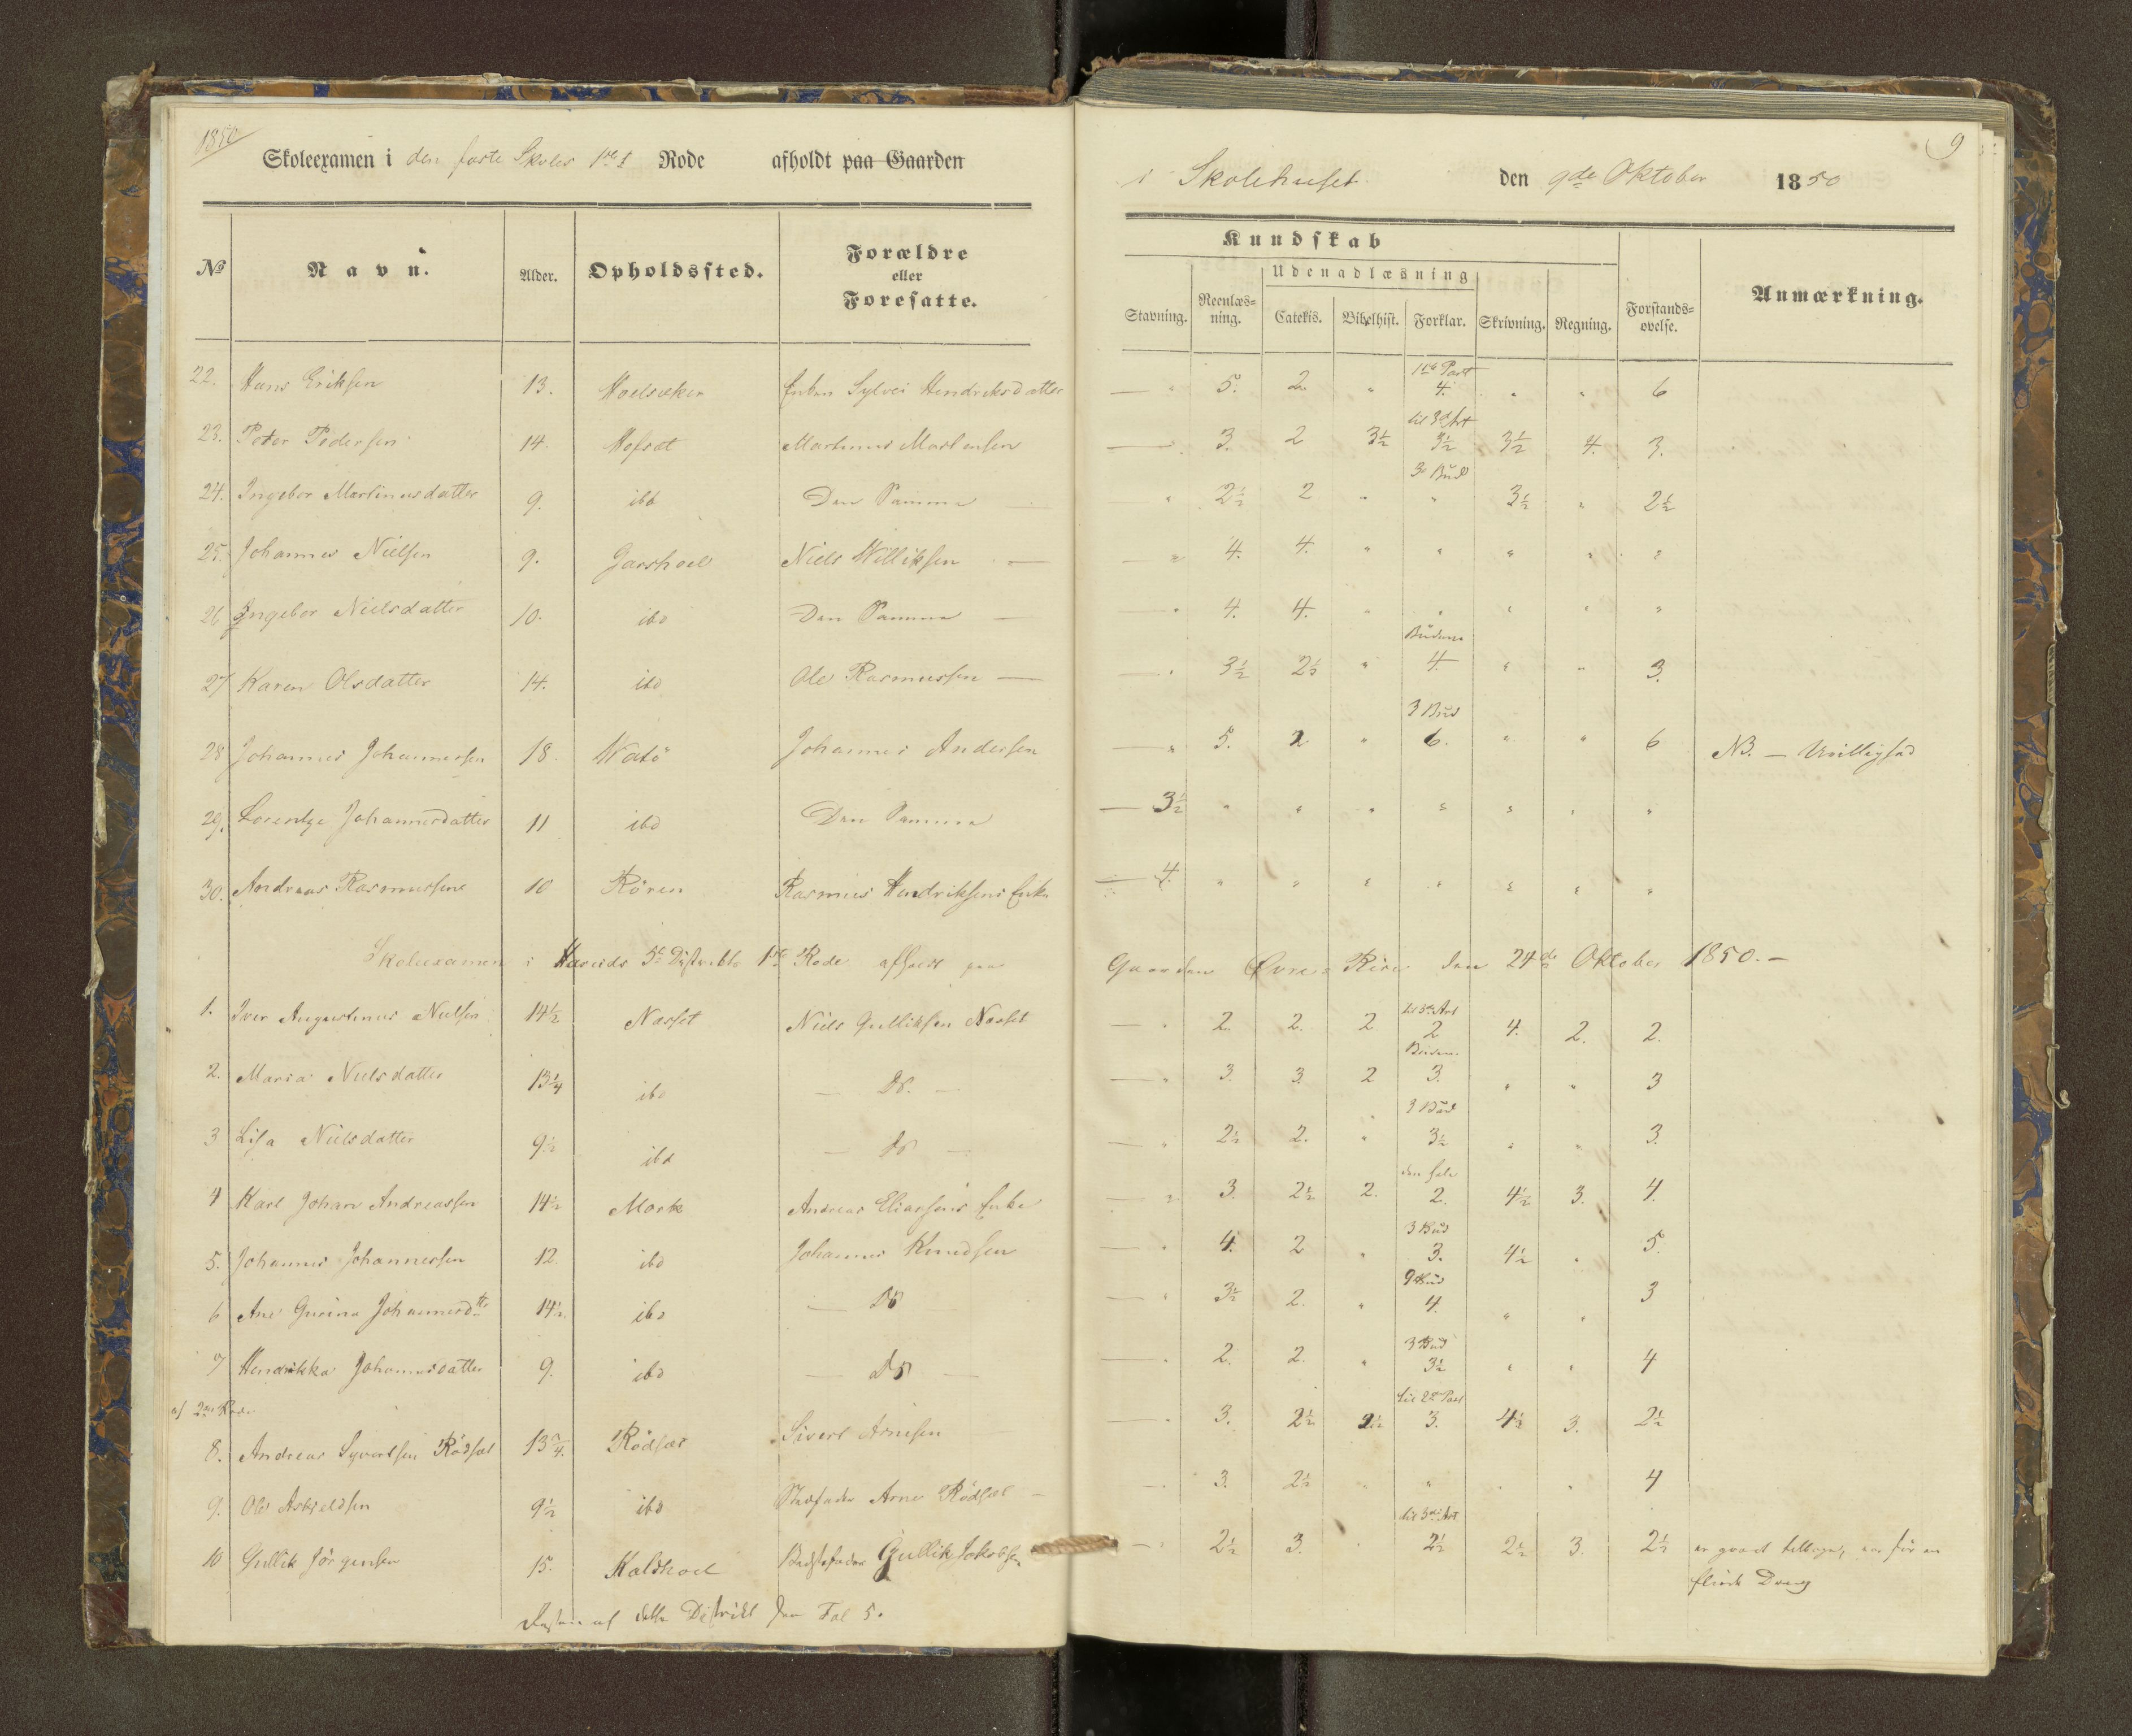 1850
Skoleexamen i den faste Skoles 1ste Rode afholdt paa Gaarden
i Skolehuset den 9de Oktober 1850
9
No
Navn.
Alder.
Opholdssted.
Forældre
eller
Foresatte.
Kundskab
Udenadlæsning
Stavning.
Reenlæs=
ning.
Catekis.
Bibelhist.
Forklar.
Skrivning.
Regning.
Forstands=
øvelse.
Anmærkning.
22. Hans Eriksen 13. Hoelseker Enken Sylvei Hendriksdatter — " 5. 2. " 1ste Part 4. " " 6
23. Peter Pedersen 14 Hofsæt Martinus Martensen — 3. 2 3½ til 3d Art 3½ 3½ 4. 3.
24. Ingebor Martinusdatter 9. ibd Den Samme — " 2½ 2 " 3 Bud " 3½ " 2½
25. Johannes Nielsen 9. Garshoel Niels Williksen — " 4. 4. " " " " "
26 Ingebor Nielsdatter 10. ibd Den Samme — " 4. 4. " " " " "
27 Karen Olsdatter 14. ibd Ole Rasmussen — " 3½ 2½ " Budene 4. " " 3.
28 Johannes Johannessen 18. Watö Johannes Andersen — " 5. 2 " 3 Bud 6. " " 6 NB. — Uvillighed
29. Lorentze Johannesdatter 11 ibd Den Samme — 3½ " " " " " " "
30. Andreas Rasmussen 10 Rören Rasmus Hendriksens Enke — 4. " " " " " " "
Skoleexamen i Hareids 5te Distrikts 1ste Rode afholdt paa Gaarden Øvre = Rise den 24de Oktober 1850. —
1. Iver Augustinus Nielsen 14½ Nasset Niels Gulliksen Nasset — " 2. 2. 2 til 3die Art 2 4. 2. 2.
2. Maria Nielsdatter 13¼ ibd — Do. — — " 3. 3. 2 Budene. 3. " " 3
3 Lisa Nielsdatter 9½ ibd — Do — — " 2½ 2. " 3 Bud 3½ " " 3.
4 Karl Johan Andreassen 14½ Mork Andreas Eliassens Enke — " 3. 2½ 2. den hele 2. 4½ 3. 4.
5. Johannes Johannessen 12. ibd Johannes Knudsen — " 4. 2 " 3 Bud 3. 4½ " 5.
6 Ane Gurina Johannesdttr 14½ ibd — Do — " 3½ 2. " 9 Bud 4. " " 3
7 Hendrikka Johannesdatter 9. ibd — Do — — " 2. 2. " 3 Bud 3½ " " 4
af 2den Rode
8. Andreas Syvertsen Rödset 13¾. Rödset Sivert Arnesen — " 3. 2½ 2½ til 2den Part 3. 4½ 3. 2½
9. Ole Askjeldsen 9½ ibd Arne Rödset — — " 3. 2½ " " " " 4
10 Gullik Jörgensen 15. Kaldhoel Bedstefader Gullik Jakobsen — " 2½ 3. " til 3die Art 2½ 2½ 3. 2½ er gaaet tilbage, var för en
flink Dreng
af dette Distrikt Fol 5.